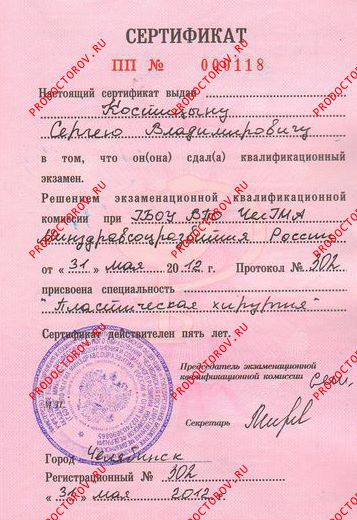 СЕРТИФИКАТ
ПП № 000118
Настоящий сертификат выдан
Костицыну
Сергею Владимировичу
в том, что он(она) сдал(а) квалификационный
экзамен.
Решением экзаменационной квалификационной
комиссии при ГБОУ ВПО ЧелГМА
Минздравсоцразвития России
от «31» мая 2012 г. Протокол № 302
присвоена специальность
"Пластическая хирургия"
Сертификат действителен пять лет.
Председатель экзаменационной
квалификационной комиссии
М.П.
Секретарь
Город Челябинск
Регистрационный № 302
«31» мая 2012 г.
PRODOCTOROV.RU